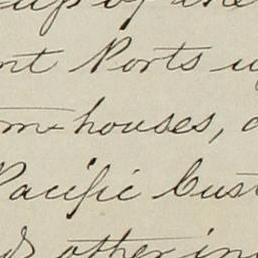 up of the
nt Ports u
m-houses,
Pacific Cust
other in